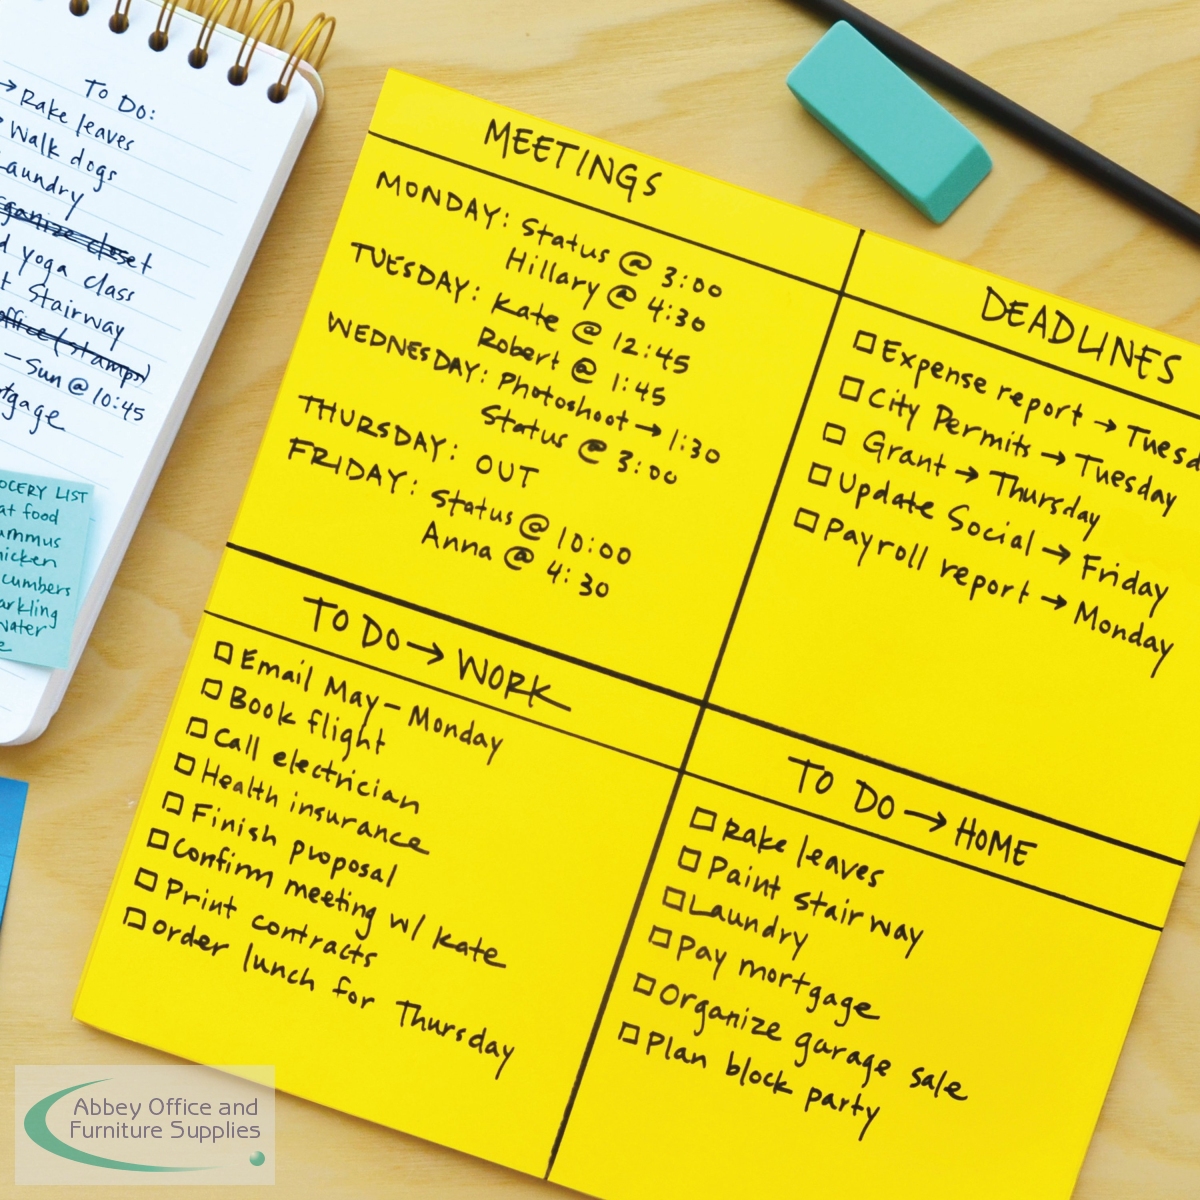 To Do:
→ Rake leaves
Walk dogs
Laundry
organize closet
yoga class
Stairway
office (stamps)
- Sun @ 10:45
GROCERY LIST
food
water
MEETINGS
MONDAY: Status @ 3:00
Hillary @ 4:30
TUESDAY: Kate @ 12:45
Robert @ 1:45
WEDNESDAY: Photoshoot → 1:30
Status @ 3:00
THURSDAY: OUT
FRIDAY: Status @ 10:00
Anna @ 4:30
DEADLINES
Expense report → Tuesd
City Permits → Tuesday
Grant → Thursday
Update Social → Friday
Payroll report → Monday
TO DO → WORK
Email May - Monday
Book flight
Call electrician
Health insurance
Finish proposal
Confirm meeting w/ Kate
Print contracts
Order lunch for Thursday
TO DO → HOME
Rake leaves
Paint stairway
Laundry
Pay mortgage
Organize garage sale
Plan block party
Abbey Office and
Furniture Supplies